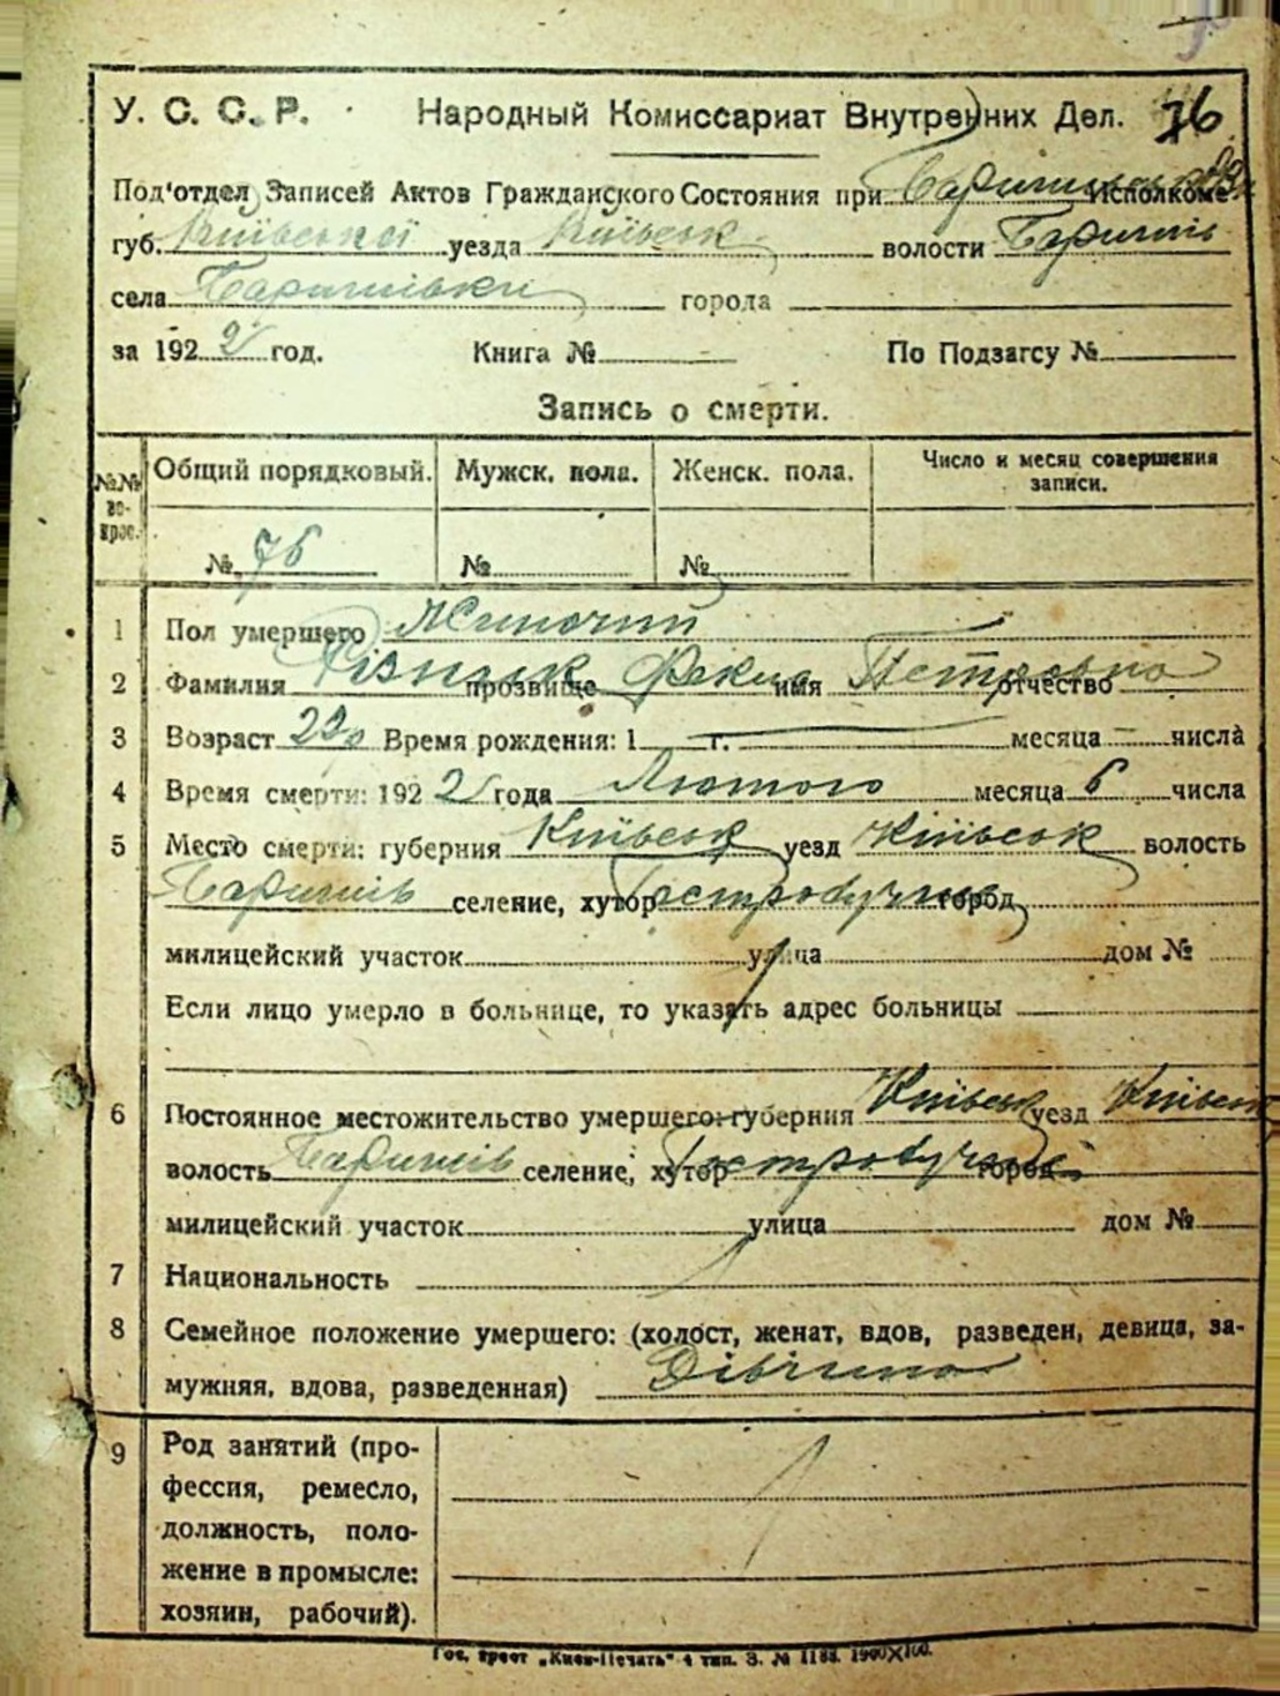 У. С. С. Р. Народный Комиссариат Внутренних Дел. 76
Под'отдел Записей Актов Гражданского Состояния при Исполкоме
губ. Київської уезда Київськ волости Баришів
села Баришівки города
за 1922 год. Книга № По Подзагсу №
Запись о смерти.
№№ вопрос. Общий порядковый. Мужск. пола. Женск. пола. Число и месяц совершения записи.
№ 76 № №
1 Пол умершего Жиночий
2 Фамилия Різнык прозвище Фекла имя Петровна отчество
3 Возраст 22 Время рождения: 1 г. месяца числа
4 Время смерти: 1922 года Лютого месяца 6 числа
5 Место смерти: губерния Київськ уезд Київськ волость
Баришів селение, хутор город
милицейский участок улица дом №
Если лицо умерло в больнице, то указать адрес больницы
6 Постоянное местожительство умершего: губерния Київськ уезд Київськ
волость Баришів селение, хутор город
милицейский участок улица дом №
7 Национальность
8 Семейное положение умершего: (холост, женат, вдов, разведен, девица, за-
мужняя, вдова, разведенная) Дівчина
9 Род занятий (про-
фессия, ремесло,
должность, поло-
жение в промысле:
хозяин, рабочий).
Гос. трест „Киев-Печать“ 4 тип. З. № 1188. 1900×100.